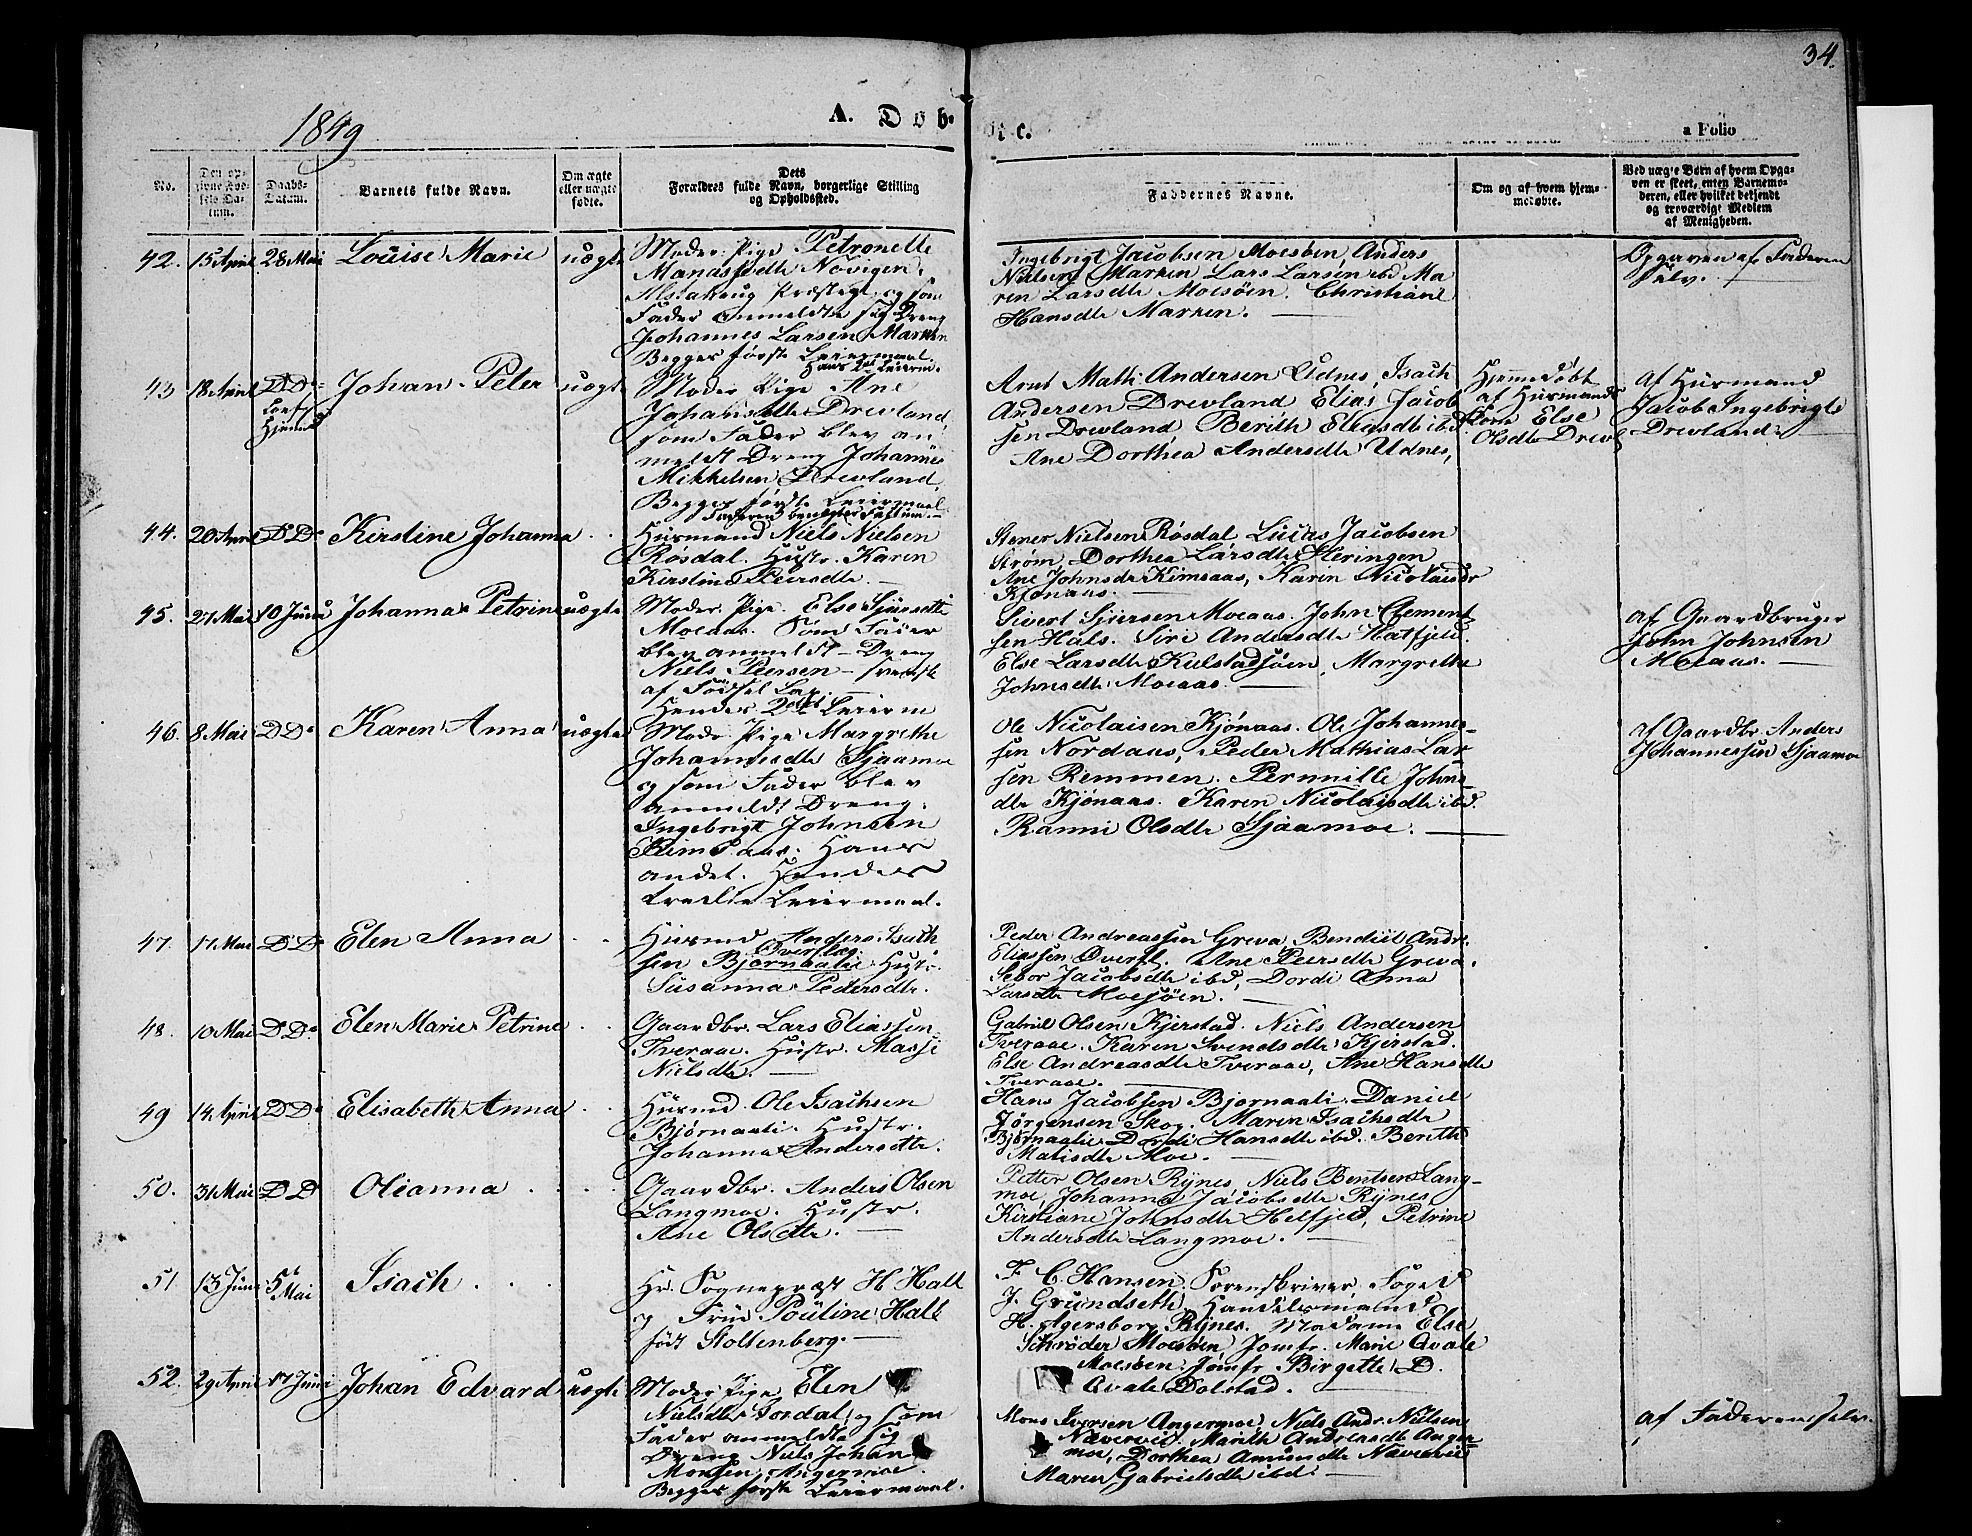 34.
1849
A. Døb-
te.
a Folio
No.
Den op-
givne Fød-
sels Da-
tum.
Daabs-
Datum.
Barnets fulde Navn.
Om ægte
eller uægte
fødte.
Dets
Forældres fulde Navn, borgerlige Stilling
og Opholdssted.
Faddernes Navne.
Om og af hvem hjem-
medøbte.
Ved uægte Børn af hvem Opga-
ven er skeet, enten Barnemo-
deren, eller hvilket bekjendt
og troværdigt Medlem
af Menigheden.
42. 15 April 28 Mai Louise Marie uægte
Moder Pige Petronelle
Mandsdtr Novigen
Alstahoug Præstegj. og som
Fader anmeldte sig Dreng
Johannes Larsen Marken
Begges første Leiermaal.
Ingebrigt Jacobsen Moesøen, Anders
Nielsen Marken Lars Larsen ibd Ma
ren Larsdtr Moesøen. Christiane
Hansdtr Marken.
Opgaven af Faderen
selv.
43 18 April DDo Johan Peter uægte
Hjemmed
Hans 2det Leierm.
Moder Pige Ane
Johansdtr Drevland,
som Fader blev an
meldt Dreng Johannes
Mikkelsen Drevland,
Begges første Leiermaal
Faderen benegter Factum.
Arnt Math. Andersen Udnes, Isach
Andersen Drevland Elias Jacob
sen Drevland Berith Eliesdtr ibd.
Ane Dorthea Andersdtr Udnes,
Hjemmedøbt
af Husmands
Kone Else
Olsdtr Drevl
Af Husmand
Jacob Ingebrigts
Drevland.
44. 20 April DDo Kirstine Johanna
Husmand Niels Nielsen
Røsdal. Hustr. Karen
Kirstina Peersdtr.
Stener Nielsen Røsdal Lucas Jacobsen
Strøm, Dorthea Larsdtr Heringen
Ane Johnsdr Kimsaas, Karen Nicolaisdr
Kjønaas.
45. 27 Mai 10 Juni Johanna Petrine uægte
Moder Pige. Else Sjursdtr
Moeaas. Som Fader
blev anmeldt Dreng
Niels Peersen svensk
af Fødsel Lap
Hendes 2det Leierm
Sivert Sjursen Moeaas. John Clement
sen Hals. Siri Andersdtr Hatfjeld.
Else Larsdtr Kulstadsøen, Margrethe
Johnsdtr Moeaas.
af Gaardbruger
John Johnsen
Moeaas.
46. 8 Mai DDo Karen Anna uægte
Modr. Pige Margrethe
Johannesdtr Sjaamoe
og som Fader blev
anmeldt Dreng.
Ingebrigt Johnsen
Kimsaas. Hans
andet. Hendes
tredie Leiermaal.
Ole Nicolaisen Kjønaas. Ole Johannes-
sen Nordaas, Peder Mathias Lar
sen Remmen. Pernille Johns
dtr Kjønaas. Karen Nicolaisdtr ibd.
Ranni Olsdtr Sjaamoe.
af Gaardbr. Anders
Johannessen Sjaamoe
47. 17 Mai DDo Elen Anna
Husmd Anders Isach
Øverslag
sen Bjørnaalie Hustr.
Susanna Pedersdtr.
Peder Andreassen Greva Bendiel Andr.
Eliassen Øversl. Ane Peersdtr Greva.
Jacobsdtr ibd, Dordi Anna
Larsdtr Moesøen.
48. 10 Mai DDo. Elen Marie Petrine
Gaardbr. Lars Eliassen
Tveraae. Hustr. Massi
Nielsdtr.
Gabriel Olsen Kjerstad. Niels Andersen
Tveraae. Karen Svendsdtr Kjerstad.
Else Andreasdtr Tveraae, Ane Hansdtr
Tveraae.
49 14 April DDo Elisabeth Anna
Husmd. Ole Isachsen
Bjørnaali. Hustr.
Johanna Andersdtr.
Hans Jacobsen Bjornaali. Daniel
Jørgensen Skog. Maren Isachsdtr
Bjørnaalie Dordi Hansdtr ibd. Berith
Matisdtr Moe.
50. 31 Mai DD Olianna
Gaardbr. Anders Olsen
Langmoe. Hustr.
Ane Olsdtr.
Petter Olsen Rynes, Niels Bentsen Lang-
moe, Johanna Jacobsdtr Rynes
Kirstiane Johnsdtr Helfjeld, Petrine
Andersdtr Langmoe.
51 13 Juni 5t Mai Isach
Hr. Sognepræst H Hall
og Frue Pouline Hall
født Stoltenberg.
F. C. Hansen Sorenskriver, Foged
J. Grundseth, Handelsmand
H. Agersborg Rynes. Madame Else
Schrøder Moesøen Jomfr. Marie Qvale
Moesøen. Jomfr Birgette D.
Qvale Dolstad.
52. 29 April 17 Juni Johan Edvard uægte
Moder Pige Elen
Nielsdtr og som
Fader anmeldte sig
Dreng Niels Johan
Monsen Angermoe.
Begges første Leiermaal.
Mons Iversen Angermoe, Niels Andr. Nielsen
Nævervid. Marith Andreasdtr Anger
moe, Dorthea Amundsdtr Nævervid
Maren Gabrielsdtr ibd.
af Faderen selv.